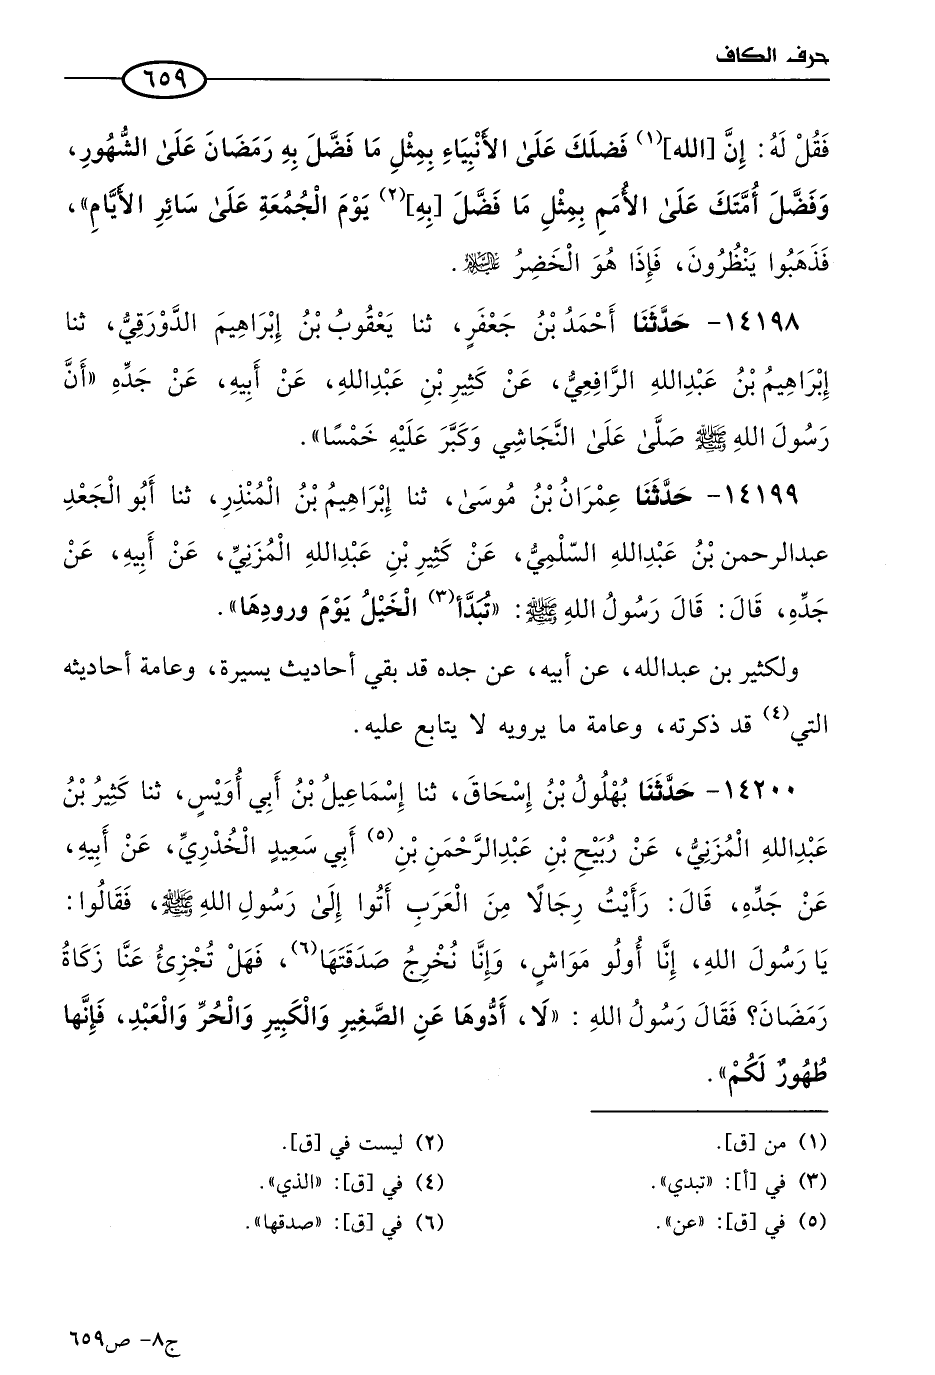 حرف الكاف
٦٥٩
فَقُلْ لَهُ: إِنَّ [الله]⁽¹⁾ فَضلَكَ عَلَىٰ الأَنْبِيَاءِ بِمِثْلِ مَا فَضَّلَ بِهِ رَمَضَانَ عَلَىٰ الشُّهُورِ،
وَفَضَّلَ أُمَّتَكَ عَلَىٰ الأُمَمِ بِمِثْلِ مَا فَضَّلَ [بِهِ]⁽٢⁾ يَوْمَ الْجُمُعَةِ عَلَىٰ سَائِرِ الأَيَّامِ»،
فَذَهَبُوا يَنْظُرُونَ، فَإِذَا هُوَ الْخَضِرُ عَلَيْهِ السَّلَامُ.
١٤١٩٨- حَدَّثَنَا أَحْمَدُ بْنُ جَعْفَرٍ، ثنا يَعْقُوبُ بْنُ إِبْرَاهِيمَ الدَّوْرَقِيُّ، ثنا
إِبْرَاهِيمُ بْنُ عَبْدِاللهِ الرَّافِعِيُّ، عَنْ كَثِيرِ بْنِ عَبْدِاللهِ، عَنْ أَبِيهِ، عَنْ جَدِّهِ «أَنَّ
رَسُولَ اللهِ ﷺ صَلَّىٰ عَلَىٰ النَّجَاشِي وَكَبَّرَ عَلَيْهِ خَمْسًا».
١٤١٩٩- حَدَّثَنَا عِمْرَانُ بْنُ مُوسَىٰ، ثنا إِبْرَاهِيمُ بْنُ الْمُنْذِرِ، ثنا أَبُو الْجَعْدِ
عبدالرحمن بْنُ عَبْدِاللهِ السّلْمِيُّ، عَنْ كَثِيرِ بْنِ عَبْدِاللهِ الْمُزَنِيِّ، عَنْ أَبِيهِ، عَنْ
جَدِّهِ، قَالَ: قَالَ رَسُولُ اللهِ ﷺ: «تُبَدَّأ⁽٣⁾ الْخَيْلُ يَوْمَ ورودِهَا».
ولكثير بن عبدالله، عن أبيه، عن جده قد بقي أحاديث يسيرة، وعامة أحاديثه
التي⁽٤⁾ قد ذكرته، وعامة ما يرويه لا يتابع عليه.
١٤٢٠٠- حَدَّثَنَا بُهْلُولُ بْنُ إِسْحَاقَ، ثنا إِسْمَاعِيلُ بْنُ أَبِي أُوَيْسٍ، ثنا كَثِيرُ بْنُ
عَبْدِاللهِ الْمُزَنِيُّ، عَنْ رُبَيْحِ بْنِ عَبْدِالرَّحْمَنِ بْنِ⁽٥⁾ أَبِي سَعِيدٍ الْخُدْرِيِّ، عَنْ أَبِيهِ،
عَنْ جَدِّهِ، قَالَ: رَأَيْتُ رِجَالًا مِنَ الْعَرَبِ أَتُوا إِلَىٰ رَسُولِ اللهِ ﷺ، فَقَالُوا:
يَا رَسُولَ اللهِ، إِنَّا أُولُو مَوَاشٍ، وَإِنَّا نُخْرِجُ صَدَقَتَهَا⁽٦⁾، فَهَلْ تُجْزِئُ عَنَّا زَكَاةُ
رَمَضَانَ؟ فَقَالَ رَسُولُ اللهِ : «لَا، أَدُّوهَا عَنِ الصَّغِيرِ وَالْكَبِيرِ وَالْحُرِّ وَالْعَبْدِ، فَإِنَّها
طُهُورٌ لَكُمْ».
(١) من [ق].
(٢) ليست في [ق].
(٣) في [أ]: «تبدي».
(٤) في [ق]: «الذي».
(٥) في [ق]: «عن».
(٦) في [ق]: «صدقها».
ج٨- ص٦٥٩